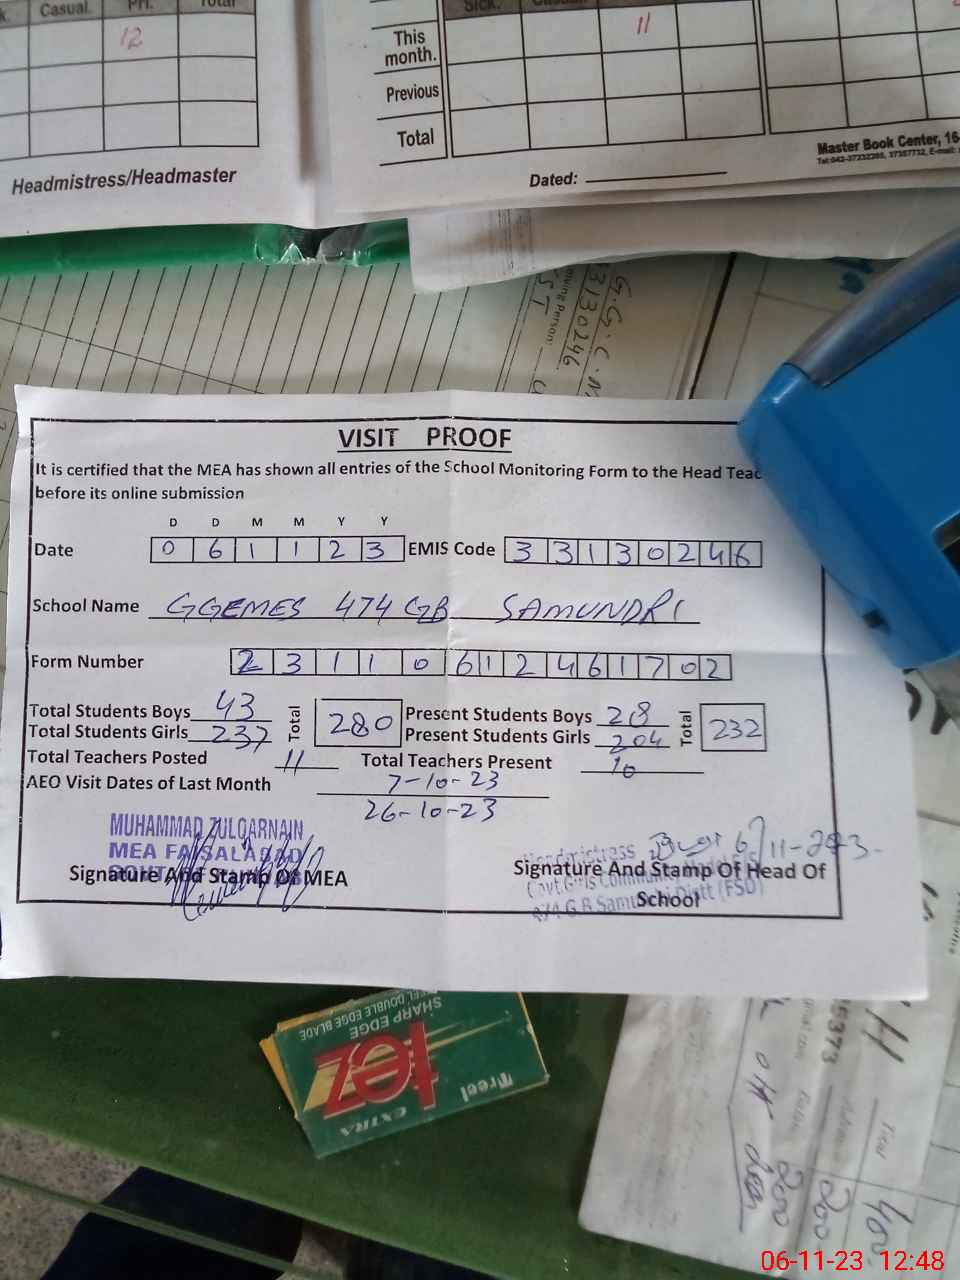 Casual. Total
12
Headmistress/Headmaster
Sick.
This month. 11
Previous
Total
Dated:
Master Book Center, 16-
G.G.C.
3130246
VISIT PROOF
It is certified that the MEA has shown all entries of the School Monitoring Form to the Head Teac
before its online submission
D D M M Y Y
Date 0 6 1 1 2 3 EMIS Code 3 3 1 3 0 2 4 6
School Name GGEMES 474 GB SAMUNDRI
Form Number 2 3 1 1 0 6 1 2 4 6 1 7 0 2
Total Students Boys 43 Total 280 Present Students Boys 28 Total 232
Total Students Girls 237 Present Students Girls 204
Total Teachers Posted 11 Total Teachers Present 10
AEO Visit Dates of Last Month 7-10-23
26-10-23
MUHAMMAD ZULQARNAIN
MEA FAISALABAD
Signature And Stamp Of MEA
Headmistress
Signature And Stamp Of Head Of
School
Govt. Girls Community Model E/S
474 G.B Samundri Distt (FSD)
SHARP EDGE
STEEL DOUBLE EDGE BLADE
tez
Treet
EXTRA
5373
200
200
400
06-11-23 12:48